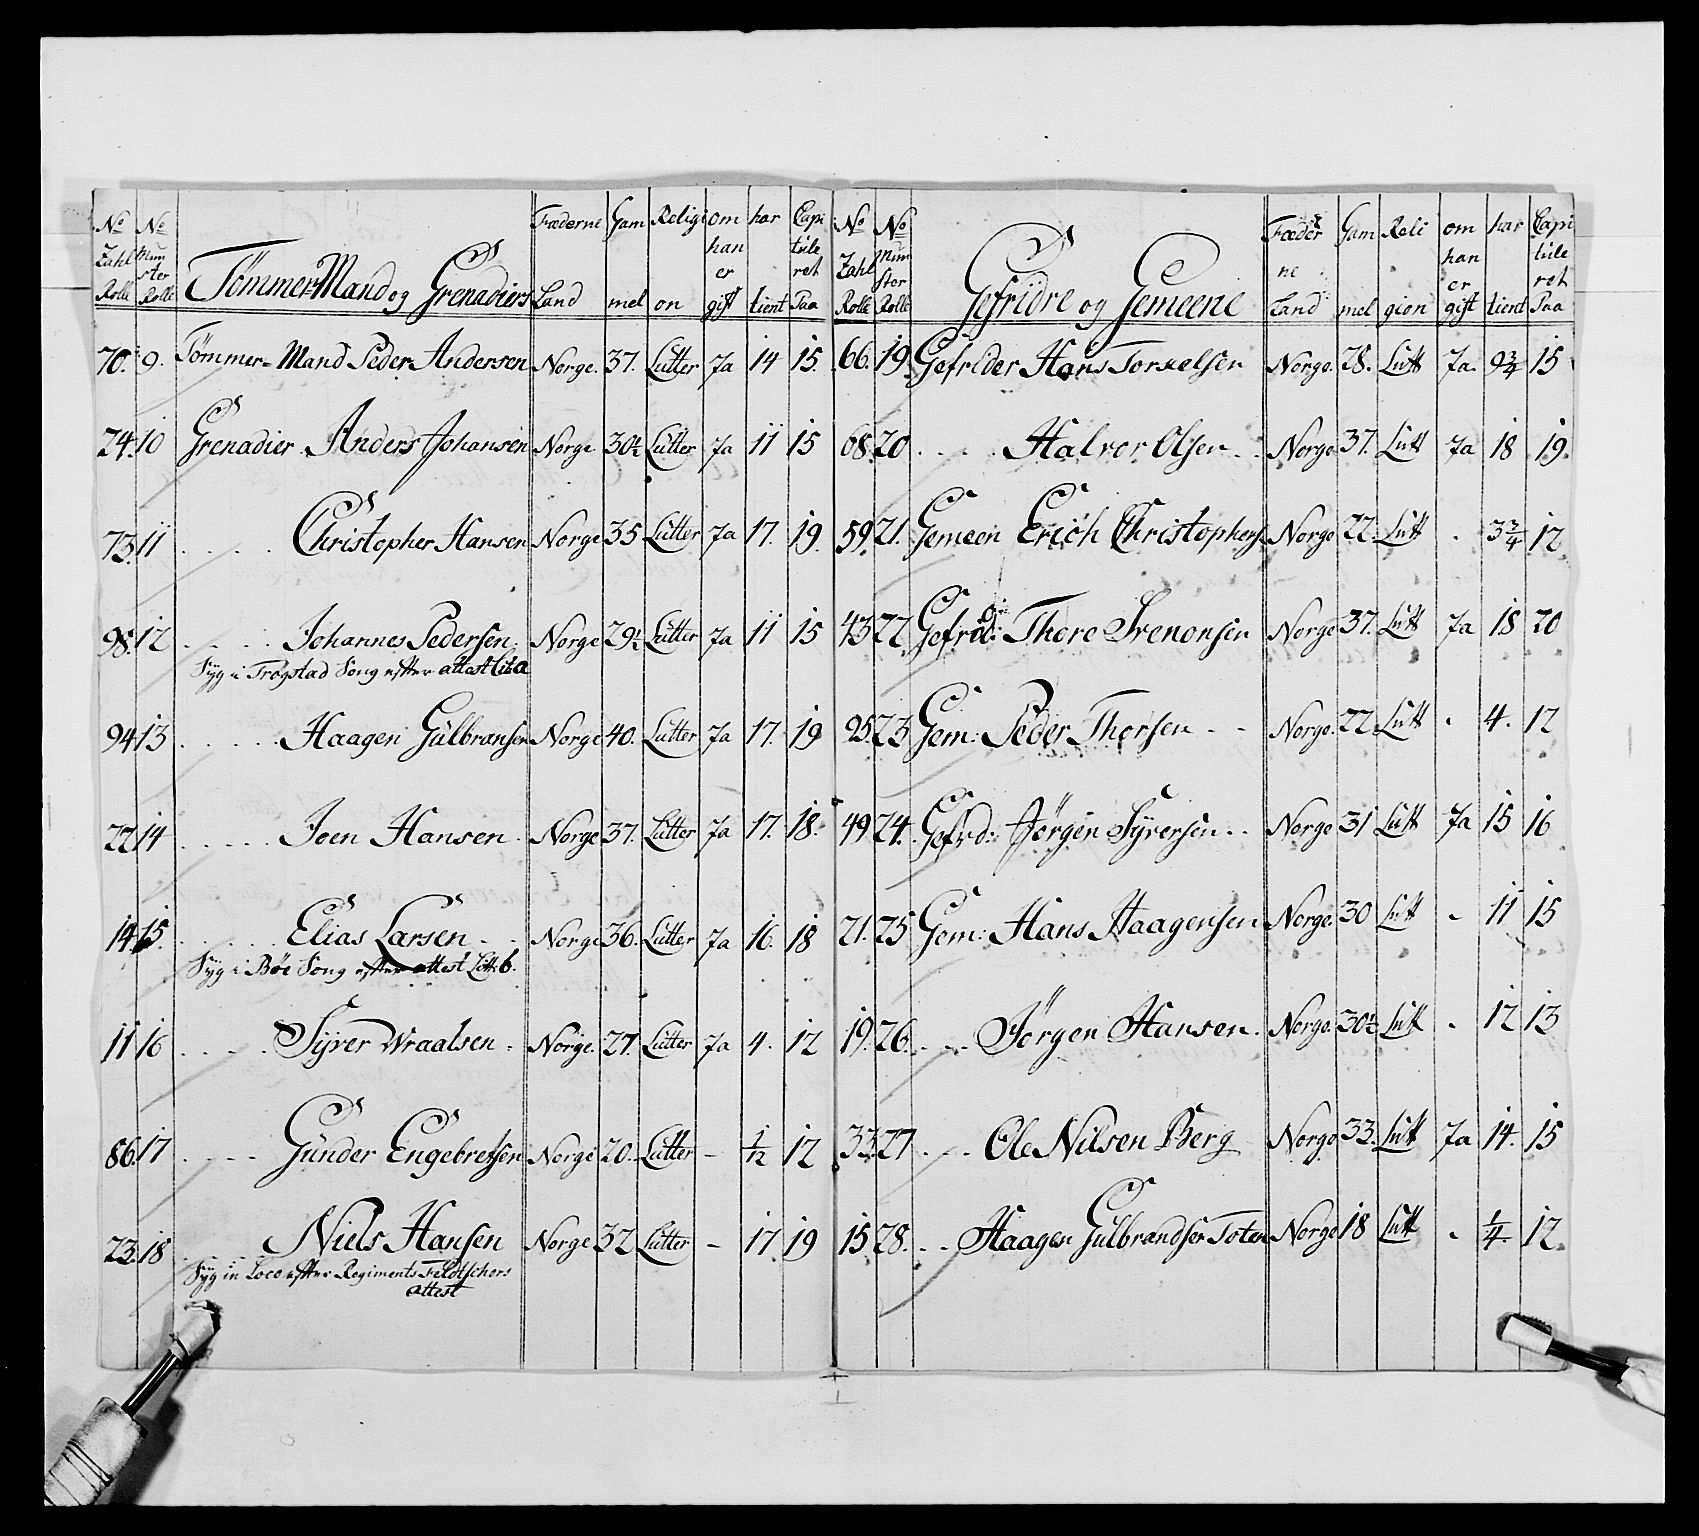 No Zahl Rolle No Mun ster Rolle Tømmer-Mand og Grenadiers Fæderne Land Gam mel Religi on om han er gift har tient Capi tule ret Paa
70. 9. Tømmer-Mand Peder Andersen Norge. 37. Lutter Ja 14 15.
24. 10 Grenadier Anders Johansen Norge 30½ Lutter Ja 11 15
73. 11 . . . . Christopher Hansen Norge 35 Lutter Ja 17. 19.
98. 12 . . . . Johannes Pedersen Norge 29½ Lutter Ja 11 15
Syg i Trøgstad Song efter attest Lit a
94. 13 . . . . . Haagen Gulbransen Norge 40. Lutter Ja 17. 19
22. 14 . . . . . Joen Hansen. Norge 37. Lutter Ja 17. 18.
14. 15. . . . . . Elias Larsen Norge 36. Lutter Ja 16. 18
Syg i Böe Song efter attest Litt: b.
11 16 . . . . Syver Wraalsen. Norge. 27. Lutter Ja 4. 12
86. 17 . . . . Gunder Engebretsen Norge 20. Lutter - 1/12 12
23. 18 . . . . Niels Hansen Norge 32 Lutter - 17 19
Syg in Loco efter Regiments Feldtschers
attest
No Zahl Rolle No Mun ster Rolle Gefridre og Gemeene Fæder ne Land Gam mel Reli gion om han er gift har tient Capi tule ret Paa
66. 19 Gefrider Hans Torkelsen Norge. 28. Lutt Ja. 9¾ 15
68. 20 . . . . Halvor Olsen Norge 37. Lutt Ja 18 19.
59. 21. Gemeen Erich Christophers Norge 22. Lutt - 3¾ 12
43. 22 Gefrd: Thore Svenonsen Norge 37. Lutt Ja 18 20
25. 23 Gem: Peder Thorsen - - Norge. 22. Lutt - 4. 12
49. 24. Gefrd: Jørgen Syversen - - Norge 31 Lutt Ja 15 16
21. 25 Gem: Hans Haagensen Norge. 30 Lutt - 11 15
19. 26. . . . Jørgen Hansen. Norge. 30½ Lutt - 12 13
33. 27 . . . . Ole Nilsen Berg Norge 33. Lutt Ja 14. 15
15. 28. . . Haagen Gulbrandsen Toten Norge 18 Lutt - ¼ 12.